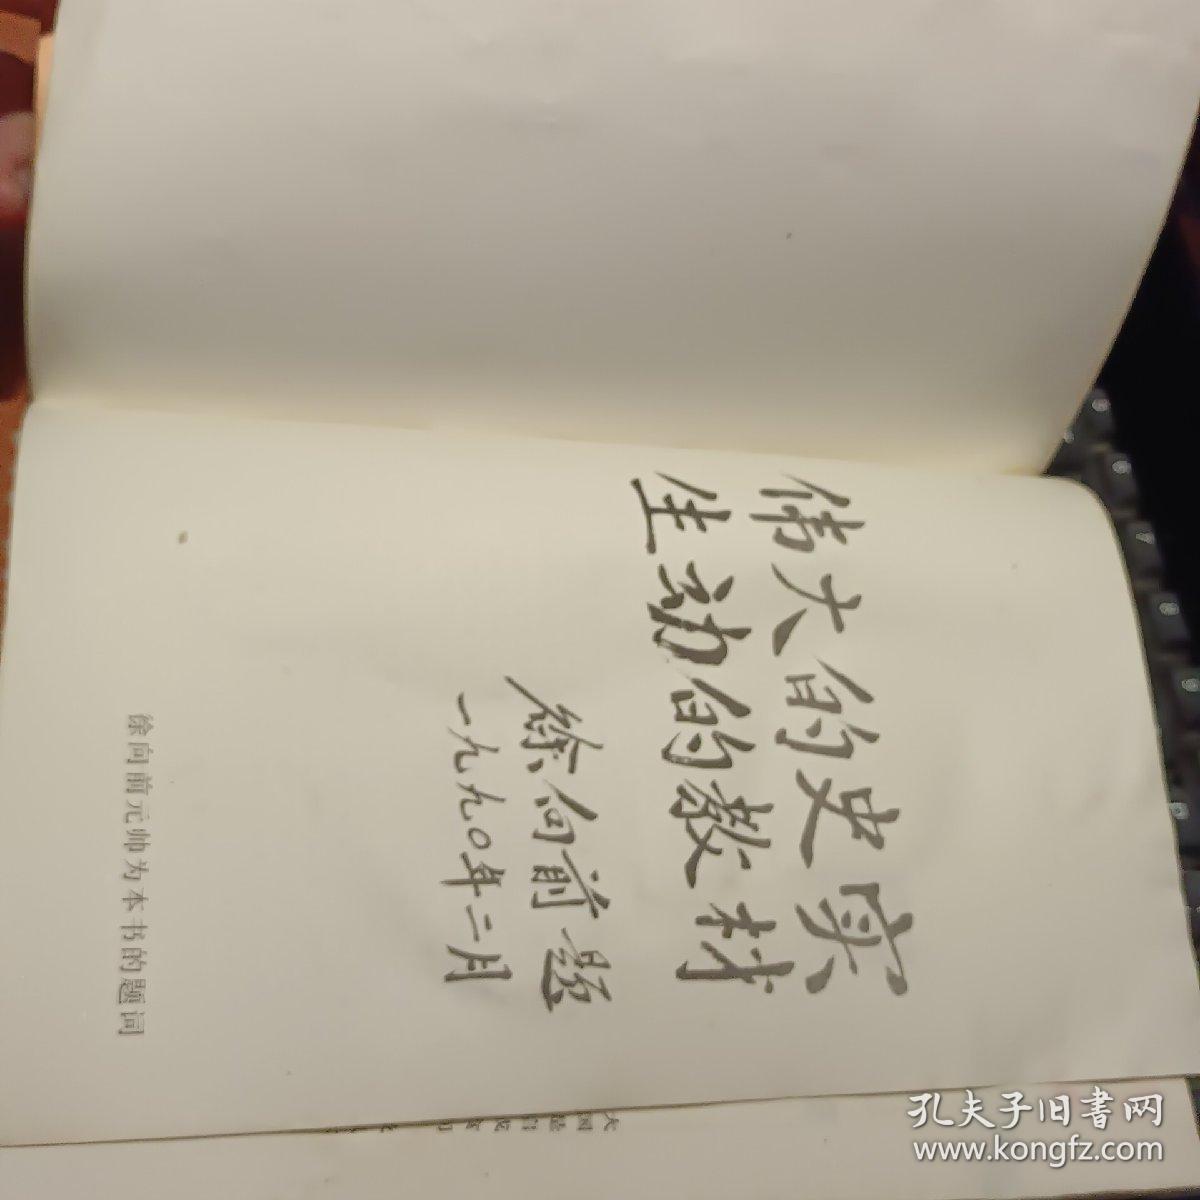 伟大的史实
生动的教材
徐向前题
一九九〇年二月
徐向前元帅为本书的题词
孔夫子旧書网
www.kongfz.com